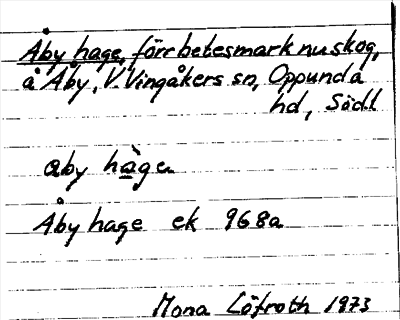 Åby hage, förr betesmark nu skog,
å Åby, V. Vingåkers sn, Oppunda
hd, Södl
åby hàge
Åby hage ek 968a
Mona Löfroth 1973